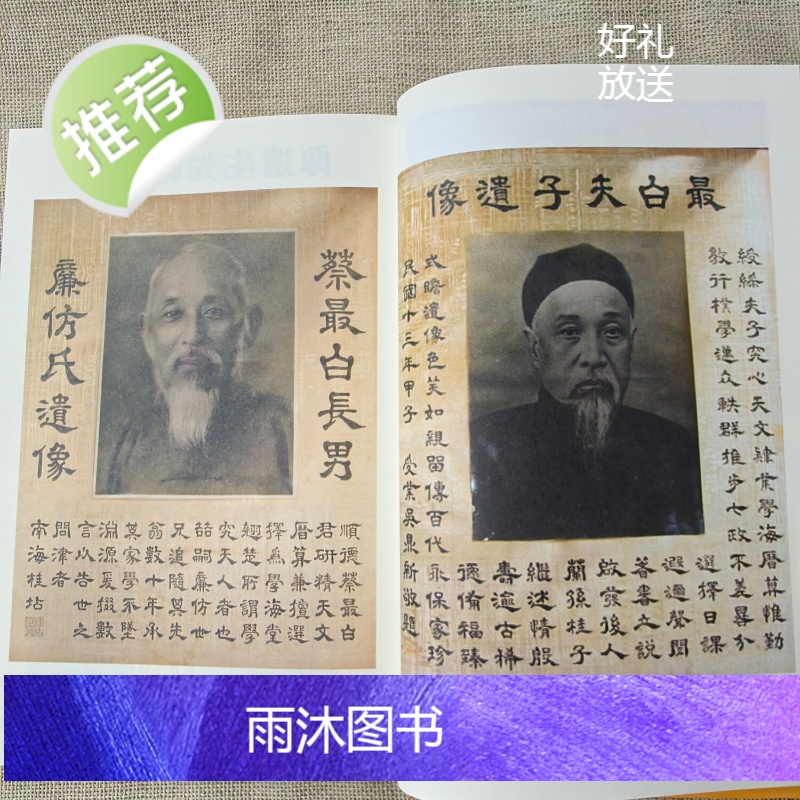 推荐
好礼
放送
蔡最白長男
廉仿氏遺像
順德蔡最白
君研精天文
曆算兼擅選
擇為學海堂
翹楚所謂學
究天人者也
喆嗣廉仿世
兄追隨其先
翁數十年承
其家學不墜
淵源爰掇數
言以告世之
問津者
南海桂坫
最白夫子遺像
綬綵夫子究心天文肄業學海曆算惟勤
敦行樸學邁众軼群推步七政不差晷分
選擇日課
遐邇聲聞
著書立說
啟發後人
蘭孫桂子
繼述情殷
壽逾古稀
德備福臻
式瞻遺像色笑如親留傳百代永保家珍
民國十三年甲子 受業吳鼎新敬題
雨沐图书